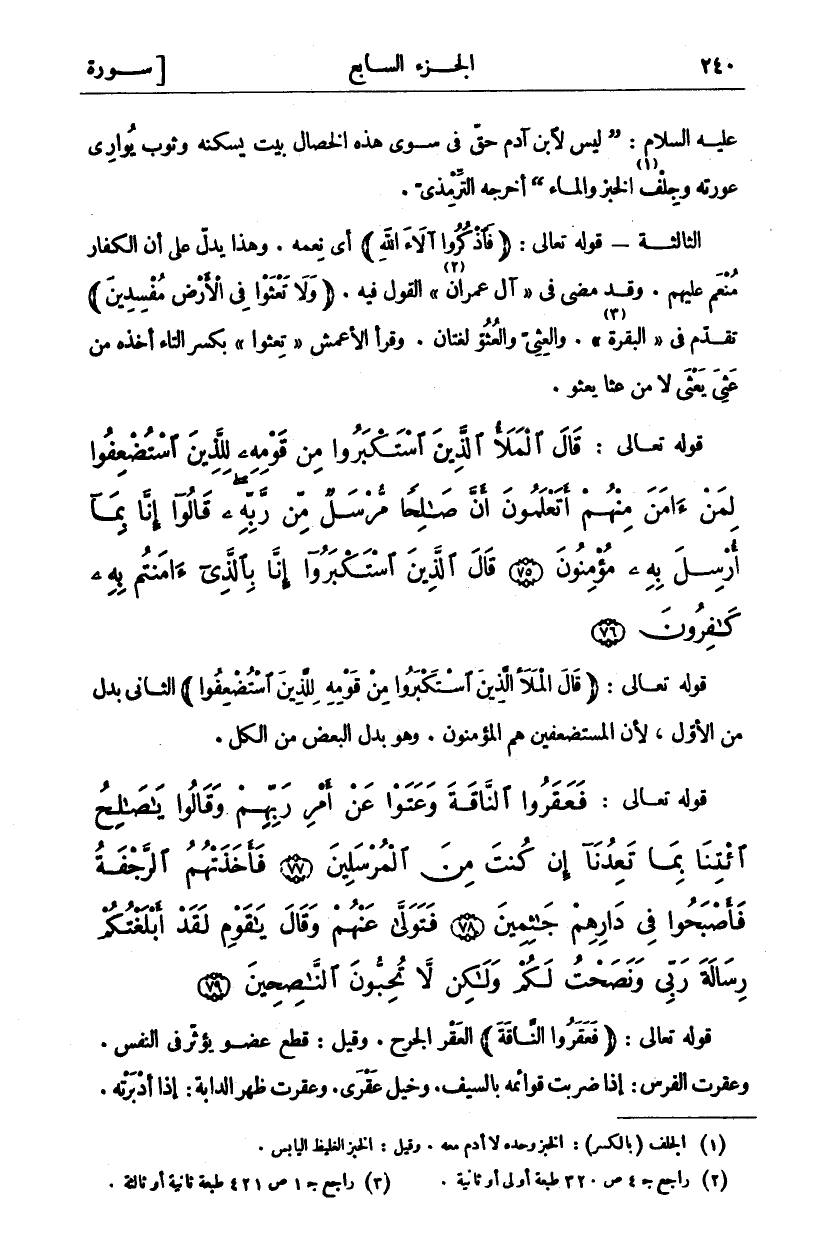 ٢٤٠ الجـزء السـابع [ ســورة
عليـه السلام : ” ليس لآبن آدم حقّ فى سـوى هذه الخصال بيت يسكنه وثوب يُوارِى
عورته وجِلْف(١) الخبز والمـاء “ أخرجه التِّرْمِذىّ .
الثالثـــة — قوله تعالى : ﴿ فَٱذْكُرُوا آلَاءَ اللهِ ﴾ أى نِعمه . وهذا يدلّ على أن الكفار
مُنْعَم عليهم . وقـد مضى فى « آل عمران(٢) » القول فيه . ﴿ وَلَا تَعْثَوْا فِى الْأَرْضِ مُفْسِدِينَ ﴾
تقـدّم فى « البقرة(٣) » . والعِثِىّ والعُثُوّ لغتان . وقرأ الأعمش « تِعثوا » بكسر التاء أخذه من
عَثِىَ يَعْثَى لا من عثا يعثو .
قوله تعـالى : قَالَ ٱلْمَلَأُ ٱلَّذِينَ ٱسْتَكْبَرُوا مِن قَوْمِهِۦ لِلَّذِينَ ٱسْتُضْعِفُوا
لِمَنْ ءَامَنَ مِنْهُمْ أَتَعْلَمُونَ أَنَّ صَـٰلِحًا مُّرْسَلٌ مِّن رَّبِّهِۦ قَالُوٓا إِنَّا بِمَـآ
أُرْسِـلَ بِهِۦ مُؤْمِنُونَ ﴿٧٥﴾ قَالَ ٱلَّذِينَ ٱسْتَكْبَرُوٓا إِنَّا بِٱلَّذِىٓ ءَامَنتُم بِهِۦ
كَـٰفِرُونَ ﴿٧٦﴾
قوله تعـالى : ﴿ قَالَ الْمَلَأُ الَّذِينَ ٱسْـتَكْبَرُوا مِنْ قَوْمِهِ لِلَّذِينَ ٱسْتُضْعِفُوا ﴾ الثـانى بدل
من الأوّل ، لأن المستضعفين هم المؤمنون . وهو بدل البعض من الكل .
قوله تعـالى : فَعَقَرُوا ٱلنَّاقَـةَ وَعَتَوْا عَنْ أَمْرِ رَبِّهِـمْ وَقَالُوا يَـٰصَـٰلِحُ
ٱئْتِنَا بِمَـا تَعِدُنَآ إِن كُنتَ مِنَ ٱلْمُرْسَلِينَ ﴿٧٧﴾ فَأَخَذَتْهُمُ ٱلرَّجْفَةُ
فَأَصْبَحُوا فِى دَارِهِمْ جَـٰثِمِينَ ﴿٧٨﴾ فَتَوَلَّىٰ عَنْهُمْ وَقَالَ يَـٰقَوْمِ لَقَدْ أَبْلَغْتُـكُمْ
رِسَالَةَ رَبِّى وَنَصَحْتُ لَـكُمْ وَلَـٰكِن لَّا تُحِبُّونَ ٱلنَّـٰصِحِينَ ﴿٧٩﴾
قوله تعالى : ﴿ فَعَقَرُوا النَّاقَةَ ﴾ العَقْر الجرح . وقيل : قطع عضـو يؤثّر فى النفس .
وعقرت الفرس : إذا ضربت قوائمه بالسيف . وخيل عَقْرَى . وعقرت ظهر الدابة : إذا أدْبَرْته .
(١) الجلف (بالكسر) : الخبز وحده لا أدم معه . وقيل : الخبز الغليظ اليابس .
(٢) راجع جـ ٤ ص ٣٢٠ طبعة أولى أو ثانية . (٣) راجع جـ ١ ص ٤٢١ طبعة ثانية أو ثالثة .